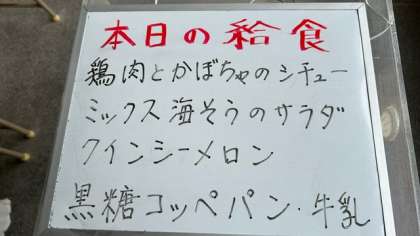 本日の給食
鶏肉とかぼちゃのシチュー
ミックス海そうのサラダ
クインシーメロン
黒糖コッペパン・牛乳